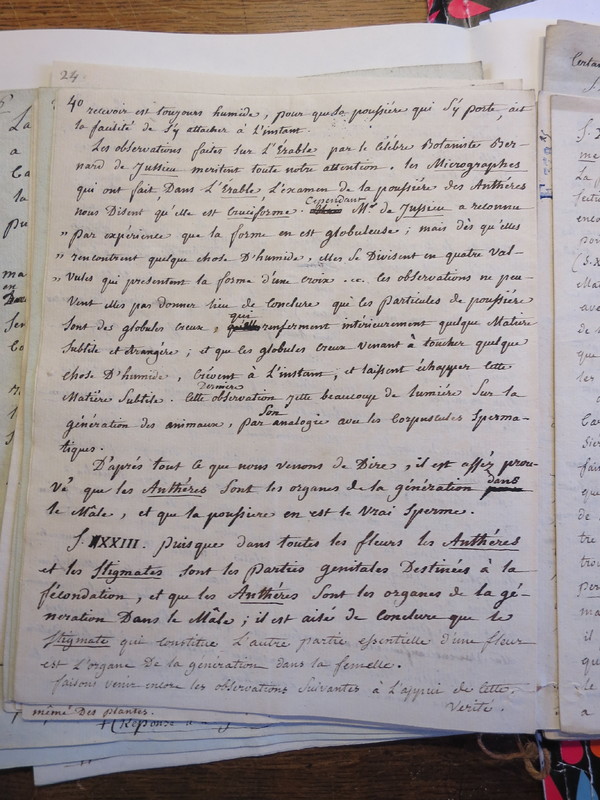 24
40 recevoir est toujours humide, pour que la poussiére qui s'y porte, ait
la facilité de s'y attacher à L'instant.
Les observations faites sur L'Erable par le Célébre Botaniste Ber-
nard de Jussieu meritent toute notre attention. les Micrographes
qui ont fait Dans L'Erable L'examen de la poussiére des Anthéres
nous Disent qu'elle est Cruciforme. Cependant Mr. de Jussieu a reconnu
" par expérience que la forme en est globuleuse; mais dès qu'elles
" rencontrent quelque chose D'humide, elles se Divisent en quatre val-
" vules qui presentent la forme d'une croix. &c. les observations ne peu-
vent elles pas donner lieu de Conclure que les particules de poussiére
sont des globules creux, qui renferment intérieurement quelque Matiére
subtile et étrangére; et que les globules creux venant à toucher quelque
chose D'humide, Crévent à L'instant, et laissent échapper cette
Matiére subtile. Cette Derniere observation jette beaucoup de lumiére sur la
génération des animaux, par son analogie avec les Corpuscules sperma-
tiques.
D'aprés tout ce que nous venons de Dire, il est assés prou-
vé que les Anthéres sont les organes de la génération dans
le Mâle, et que la poussiere en est le vrai sperme.
§. XXIII. puisque dans toutes les fleurs les Anthéres
et les Stigmates sont les parties genitales Destinées à la
fécondation, et que les Anthéres sont les organes de la gé-
neration Dans le Mâle; il est aisé de Conclure que le
Stigmate qui constitue L'autre partie essentielle d'une fleur
est L'organe De la génération dans la femelle.
faisons venir encore les observations suivantes à L'appui de cette
verité.
même Des plantes.
(Réponse à